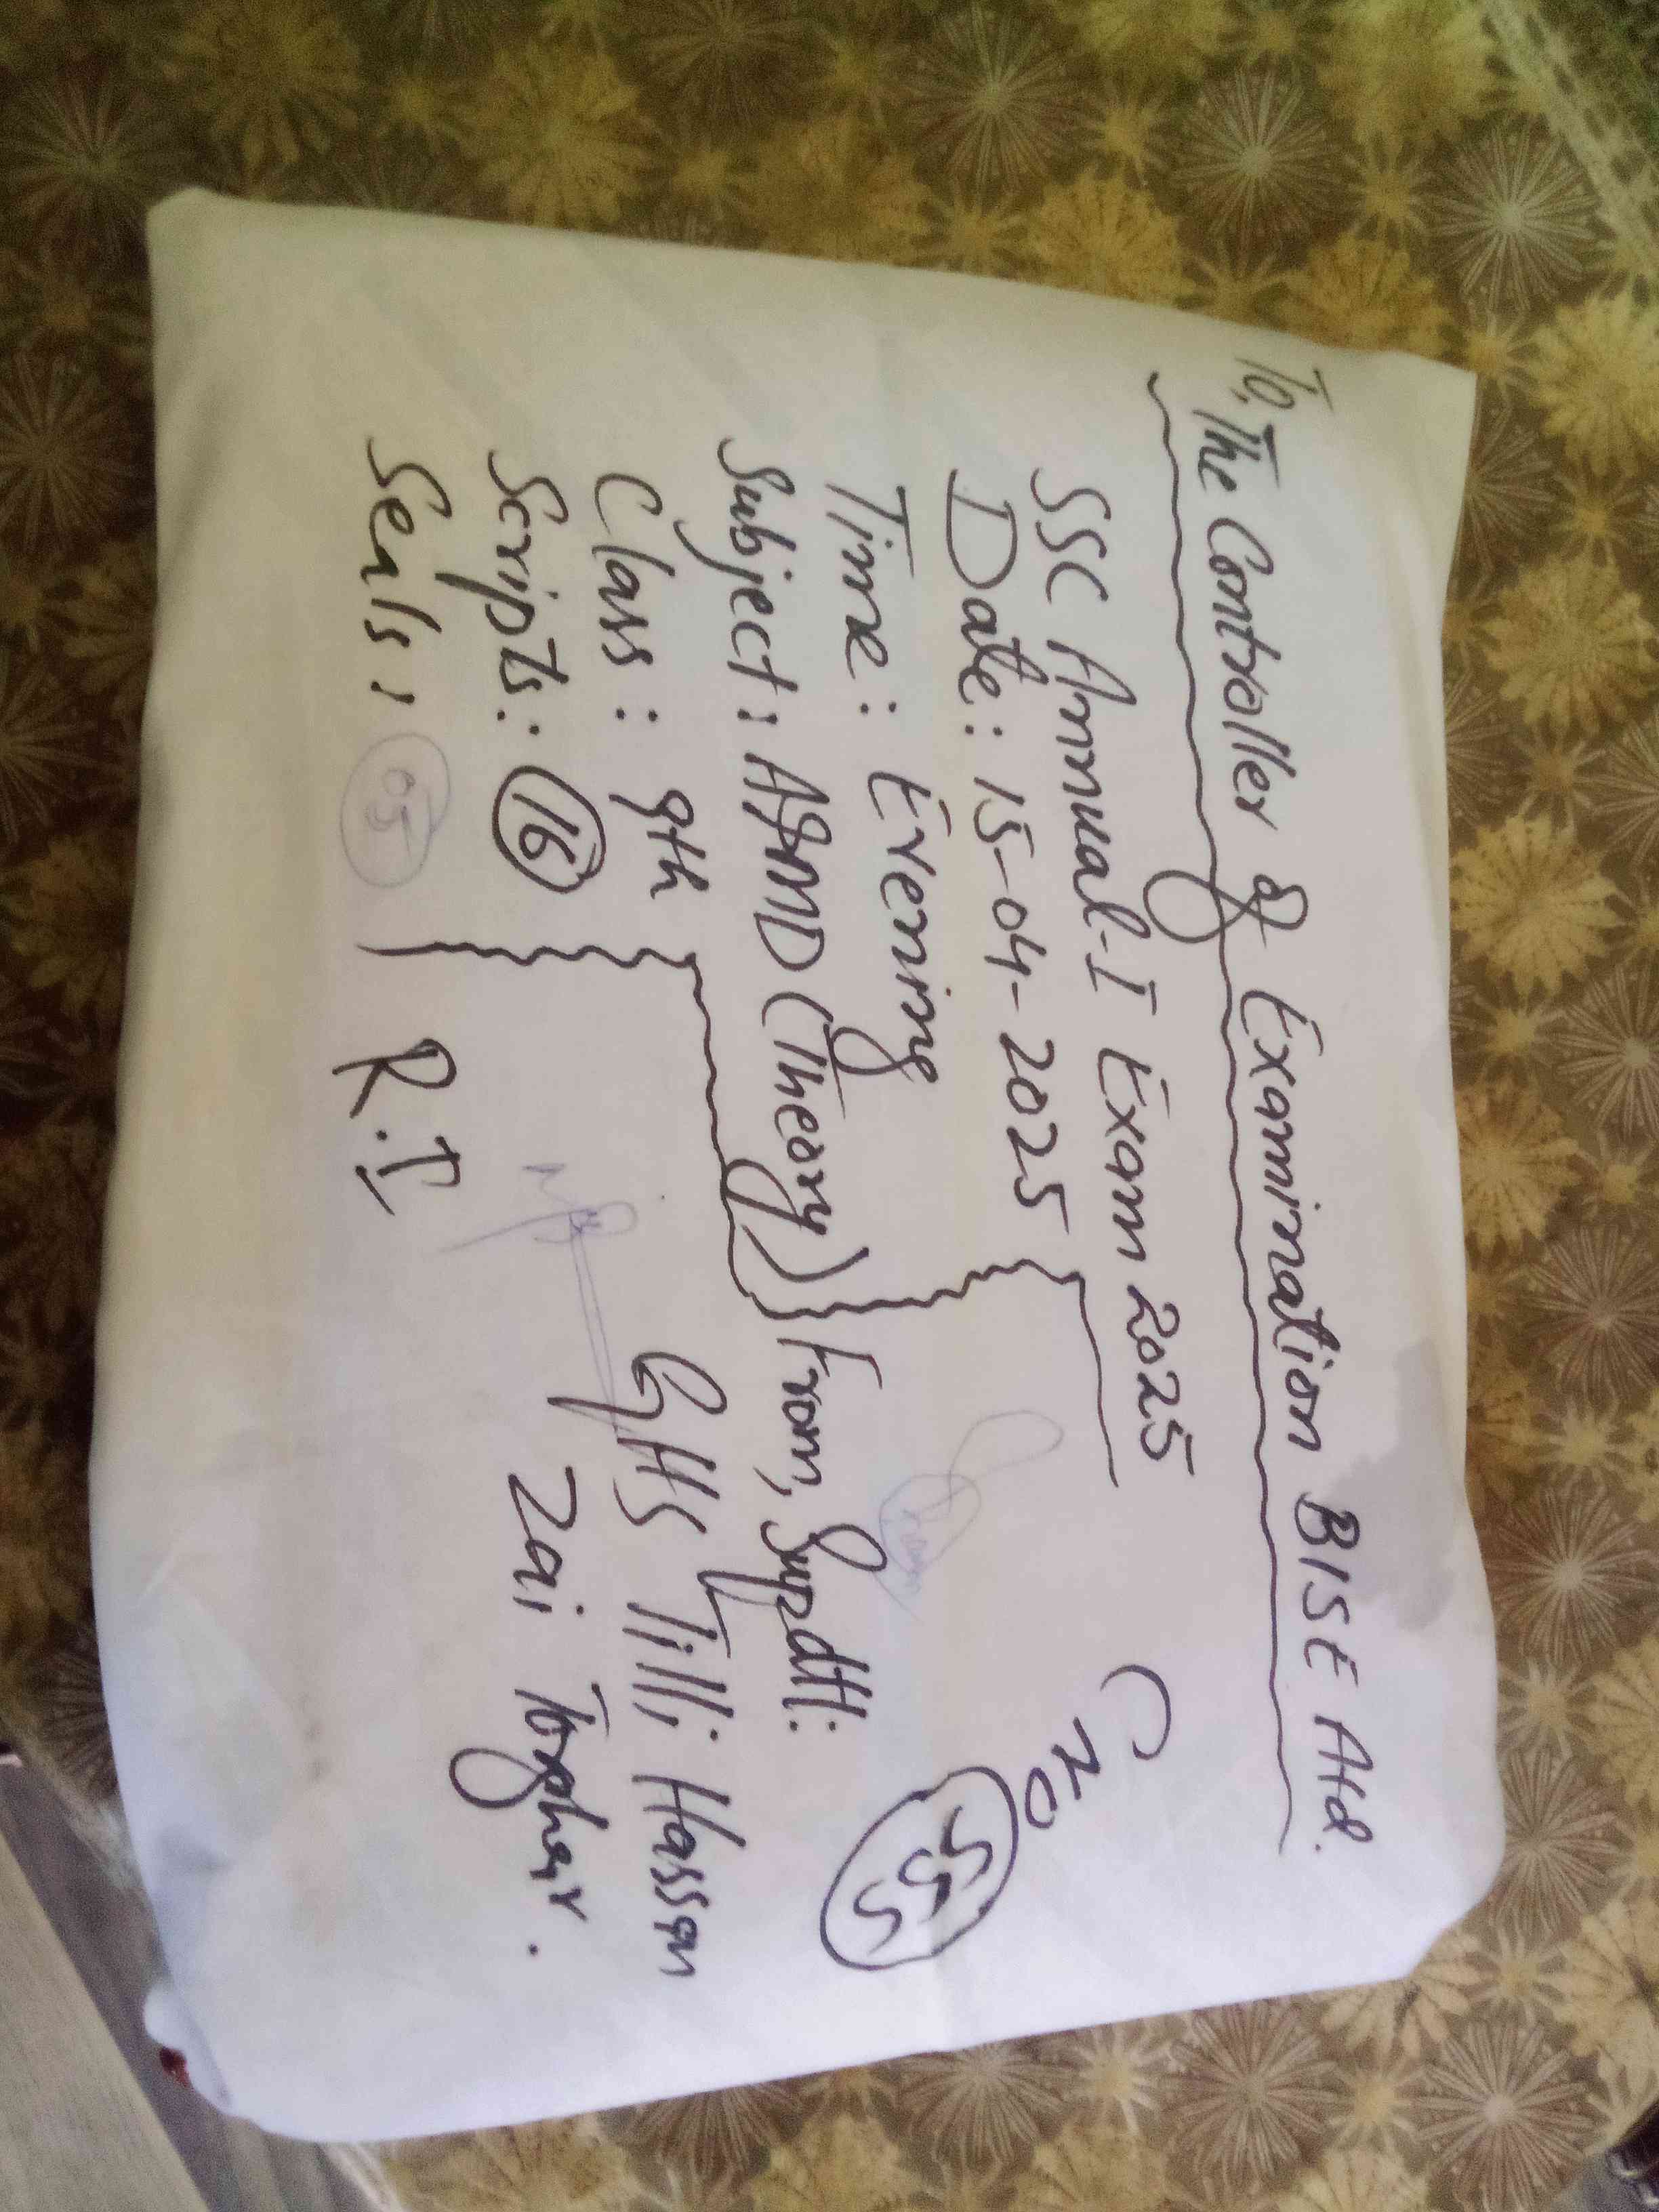 To, The Controller of Examination BISE Atd.
SSC Annual-I Exam 2025
Date: 15-04-2025
Time: Evening
Subject: (Theory)
Class: 9th
Scripts: 16
Seals: 05
R.I
C No
555
From, Supdtt:
GHS Tilli Hassan
Zai Torghar.